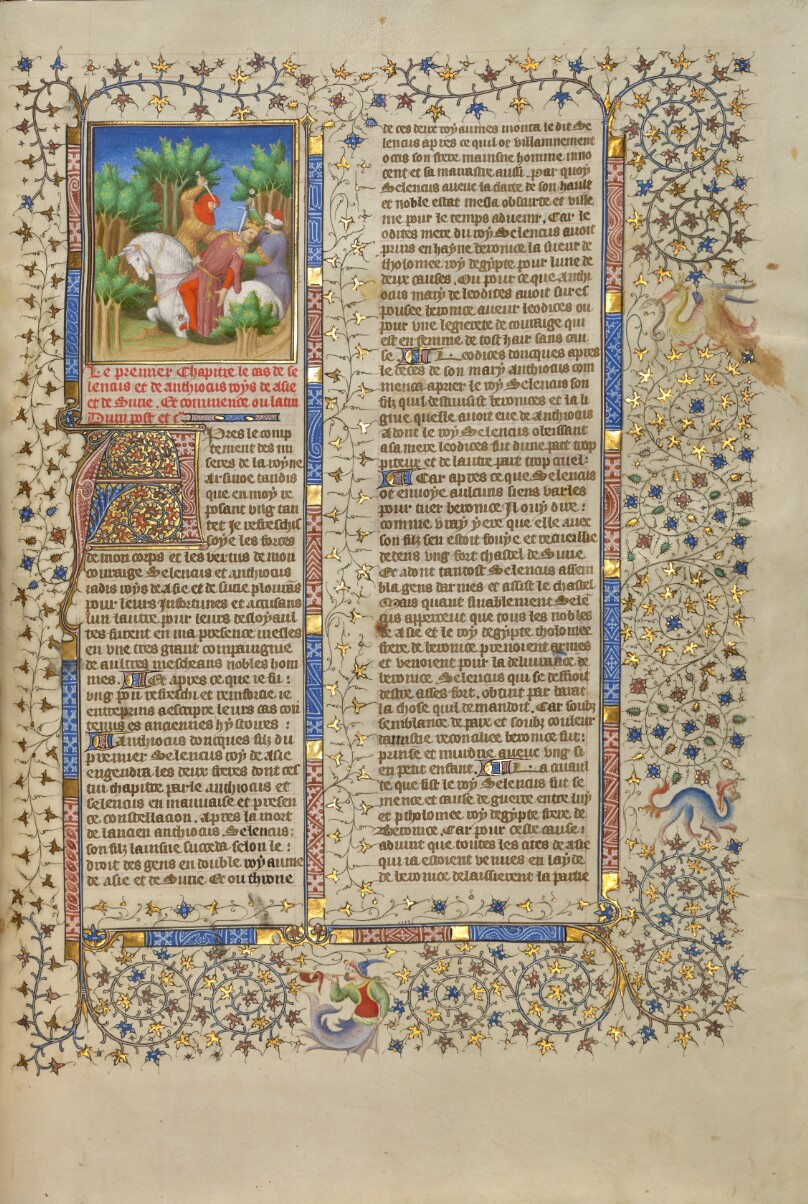 Le premier Chapitre le cas de se
lencus et de anthiocus roys de asie
et de Surie. Et commence ou latin
Dum post et c̃
Apres le comp
tement des mi
seres de la royne
Arsinoe tandis
que en moy re
posant ung tan
tet Je refreschis
soye les forces
de mon corps et les vertus de mon
couraige Selencus et anthiocus
iadis roys de asie et de surie plourans
pour leurs Infortunes et accusans
lun lautre pour leurs desloyaul
tes furent en ma presence mesles
en une tres grant compaignie
de aultres mescheans nobles hom
mes. Et apres ce que ie fu :
ung pou refreschi et renforcie ie
entreprins a escripre leurs cas con
tenus es anciennes hystoires :
Anthiocus doncques filz du
premier Selencus roy de asie
engendra les deux freres dont cest
tui chapitre parle anthiocus et
selencus en mauvaise et presen
te constellacion. Apres la mort
de lancien anthiocus Selencus :
son filz lainsne succeda selon le :
droit des gens en double royaume
de asie et de Surie Et ou throne
de ces deux royaumes monta le dit Se
lencus apres ce quil ot villainnement
occis son frere mainsne homme inno
cent et sa marastre aussi . par quoy
Selencus aveuc la clarte de son hault
et noble estat mesla obscurte et ville
nie pour le temps advenir. Car le
odites mere du roy Selencus avoit
prins en hayne beronice la sueur de
tholomee roy degypte pour lune de
deux causes. Ou pour ce que Anthi
ocus mary de leodices avoit sures
pousee beronice aveuc leodices ou
pour une legierete de couraige qui
est en femme de tost hair sans cau
se. Leodices doncques apres
le deces de son mary anthiocus com
menca a prier le roy Selencus son
filz quil destruisist beronices et la li
gnie quelle avoit eue de anthiocus
adont le roy Selencus obeissant
a sa mere leodices fut dune part trop
piteux et de lautre part trop cruel :
Car apres ce que Selencus
ot envoye aulcuns siens varles
pour tuer beronice Il ouy dire :
comme vray yere que elle avec
son filz sen estoit fouye et recueillie
dedens ung fort chastel de Surie
Et adont tantost Selencus assem
bla gens darmes et assist le chastel
Mais quant finablement Sele
cus apperceut que tous les nobles
de asie et le roy degypte tholomee
frere de beronice prenoient armes
et venoient pour la delivrance de
beronice. Selencus qui se deffioit
destre asses fort. obtint par barat
la chose quil demandoit. Car soubz
semblance de paix et soubz couleur
damistie reconciliee beronice fut :
prinse et murdrie aveuc ung si
en petit enfant. La cruaul
te que fist le roy Selencus fut se
mence et cause de guerre entre luy
et ptholomee roy degypte frere de
Beronice. Car pour ceste cause :
advint que toutes les cites de asie
qui ia estoient venues en layde
de beronice delaissierent la partie